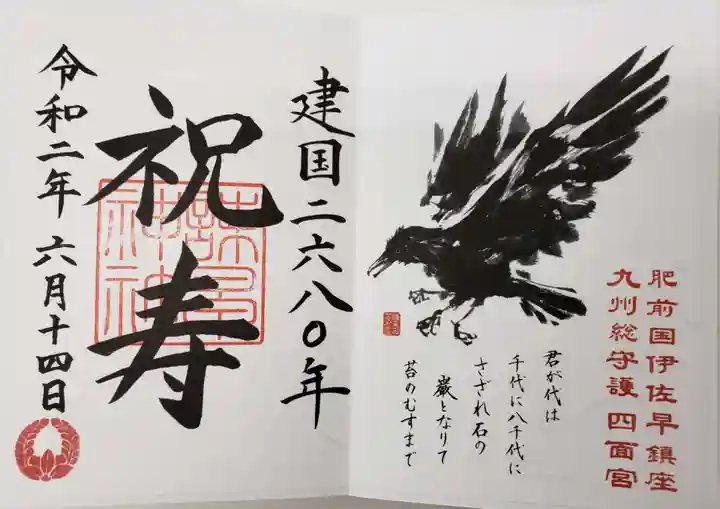 肥前国伊佐早鎮座
九州総守護 四面宮
君が代は
千代に八千代に
さざれ石の
巌となりて
苔のむすまで
建国二六八〇年
祝寿
令和二年 六月十四日